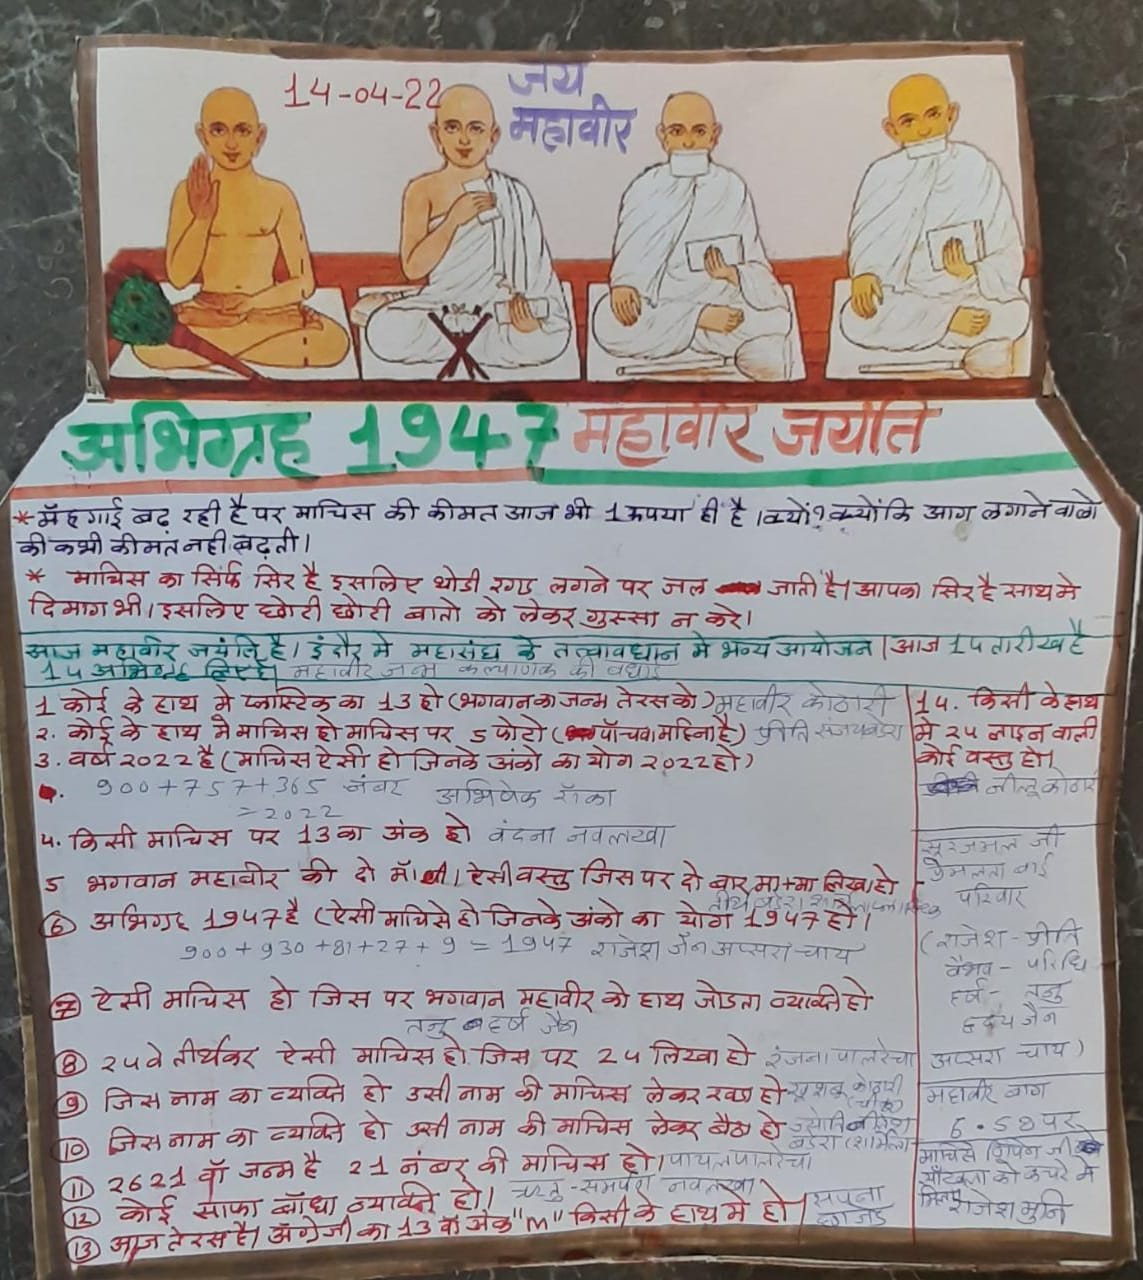 14-04-22
जय
महावीर
अभिग्रह 1947 महावीर जयंति
* मॅंहगाई बढ़ रही है पर माचिस की कीमत आज भी 1 रूपया ही है । क्यों? क्योंकि आग लगाने वालो
की कभी कीमत नही बढ़ती।
* माचिस का सिर्फ सिर है इसलिए थोडी रगड लगने पर जल जाती है। आपका सिर है साथ मे
दिमाग भी। इसलिए छोटी छोटी बातो को लेकर गुस्सा न करे।
आज महावीर जयंति है। इंदौर मे महासंघ के तत्वावधान मे भव्य आयोजन । आज 14 तारीख है
14 अभिग्रह लिए है। महावीर जन्म कल्याणक की बधाई
1 कोई के हाथ मे प्लास्टिक का 13 हो (भगवान का जन्म तेरस को) महावीर कोठारी
२. कोई के हाथ मे माचिस हो माचिस पर 5 फोटो (पॉचवा महिना है) प्रीति संजय बडेरा
3. वर्ष २०२२ है (माचिस ऐसी हो जिनके अंको का योग २०२२ हो)
900+757+365 नंबर अभिषेक रॉका
=2022
4. किसी माचिस पर 13 का अंक हो वंदना नवलखा
5 भगवान महावीर की दो मॉ थी। ऐसी वस्तु जिस पर दो बार मा+मा लिखा हो
6 अभिग्रह 1947 है (ऐसी माचिसे हो जिनके अंको का योग 1947 हो।
900+930+81+27+9=1947 राजेश जैन अप्सरा चाय
7 ऐसी माचिस हो जिस पर भगवान महावीर को हाथ जोडता व्यक्ति हो
तनु हर्ष जैन
8 २4वे तीर्थंकर ऐसी माचिस हो जिस पर 24 लिखा हो रंजना पालरेचा
9 जिस नाम का व्यक्ति हो उसी नाम की माचिस लेकर खडा हो खुशबू कोठारी
10 जिस नाम का व्यक्ति हो उसी नाम की माचिस लेकर बैठा हो
बडेरा (शर्मिला)
11 2621 वॉ जन्म है 21 नंबर की माचिस हो। पायल पालरेचा
12 कोई साफा बॉधा व्यक्ति हो। ऋतु-समर्पण नवलखा
13 आज तेरस है। अंग्रेजी का 13 वॉ अंक "M" किसी के हाथ मे हो। सपना
छाजेड
14. किसी के हाथ
मे 24 लाइन वाली
कोई वस्तु हो।
नीलू कोठारी
सूरजमल जी
प्रेमलता बाई
परिवार
(राजेश-प्रीति
वैभव - परिधि
हर्ष - तनु
हृदय जैन
अप्सरा चाय)
महावीर बाग
6.58 पर
माचिसे जी
को कचरे मे
मिला राजेश मुनि